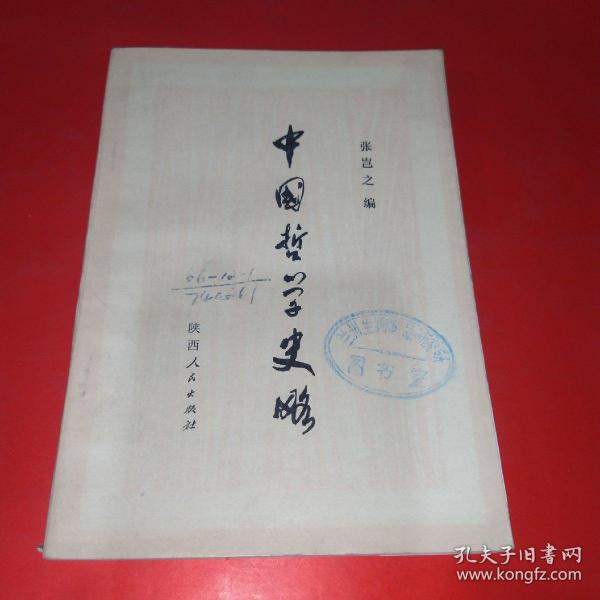 张岂之 编
中國哲学史略
陕西人民出版社
图书室
孔夫子旧书网
www.kongfz.com